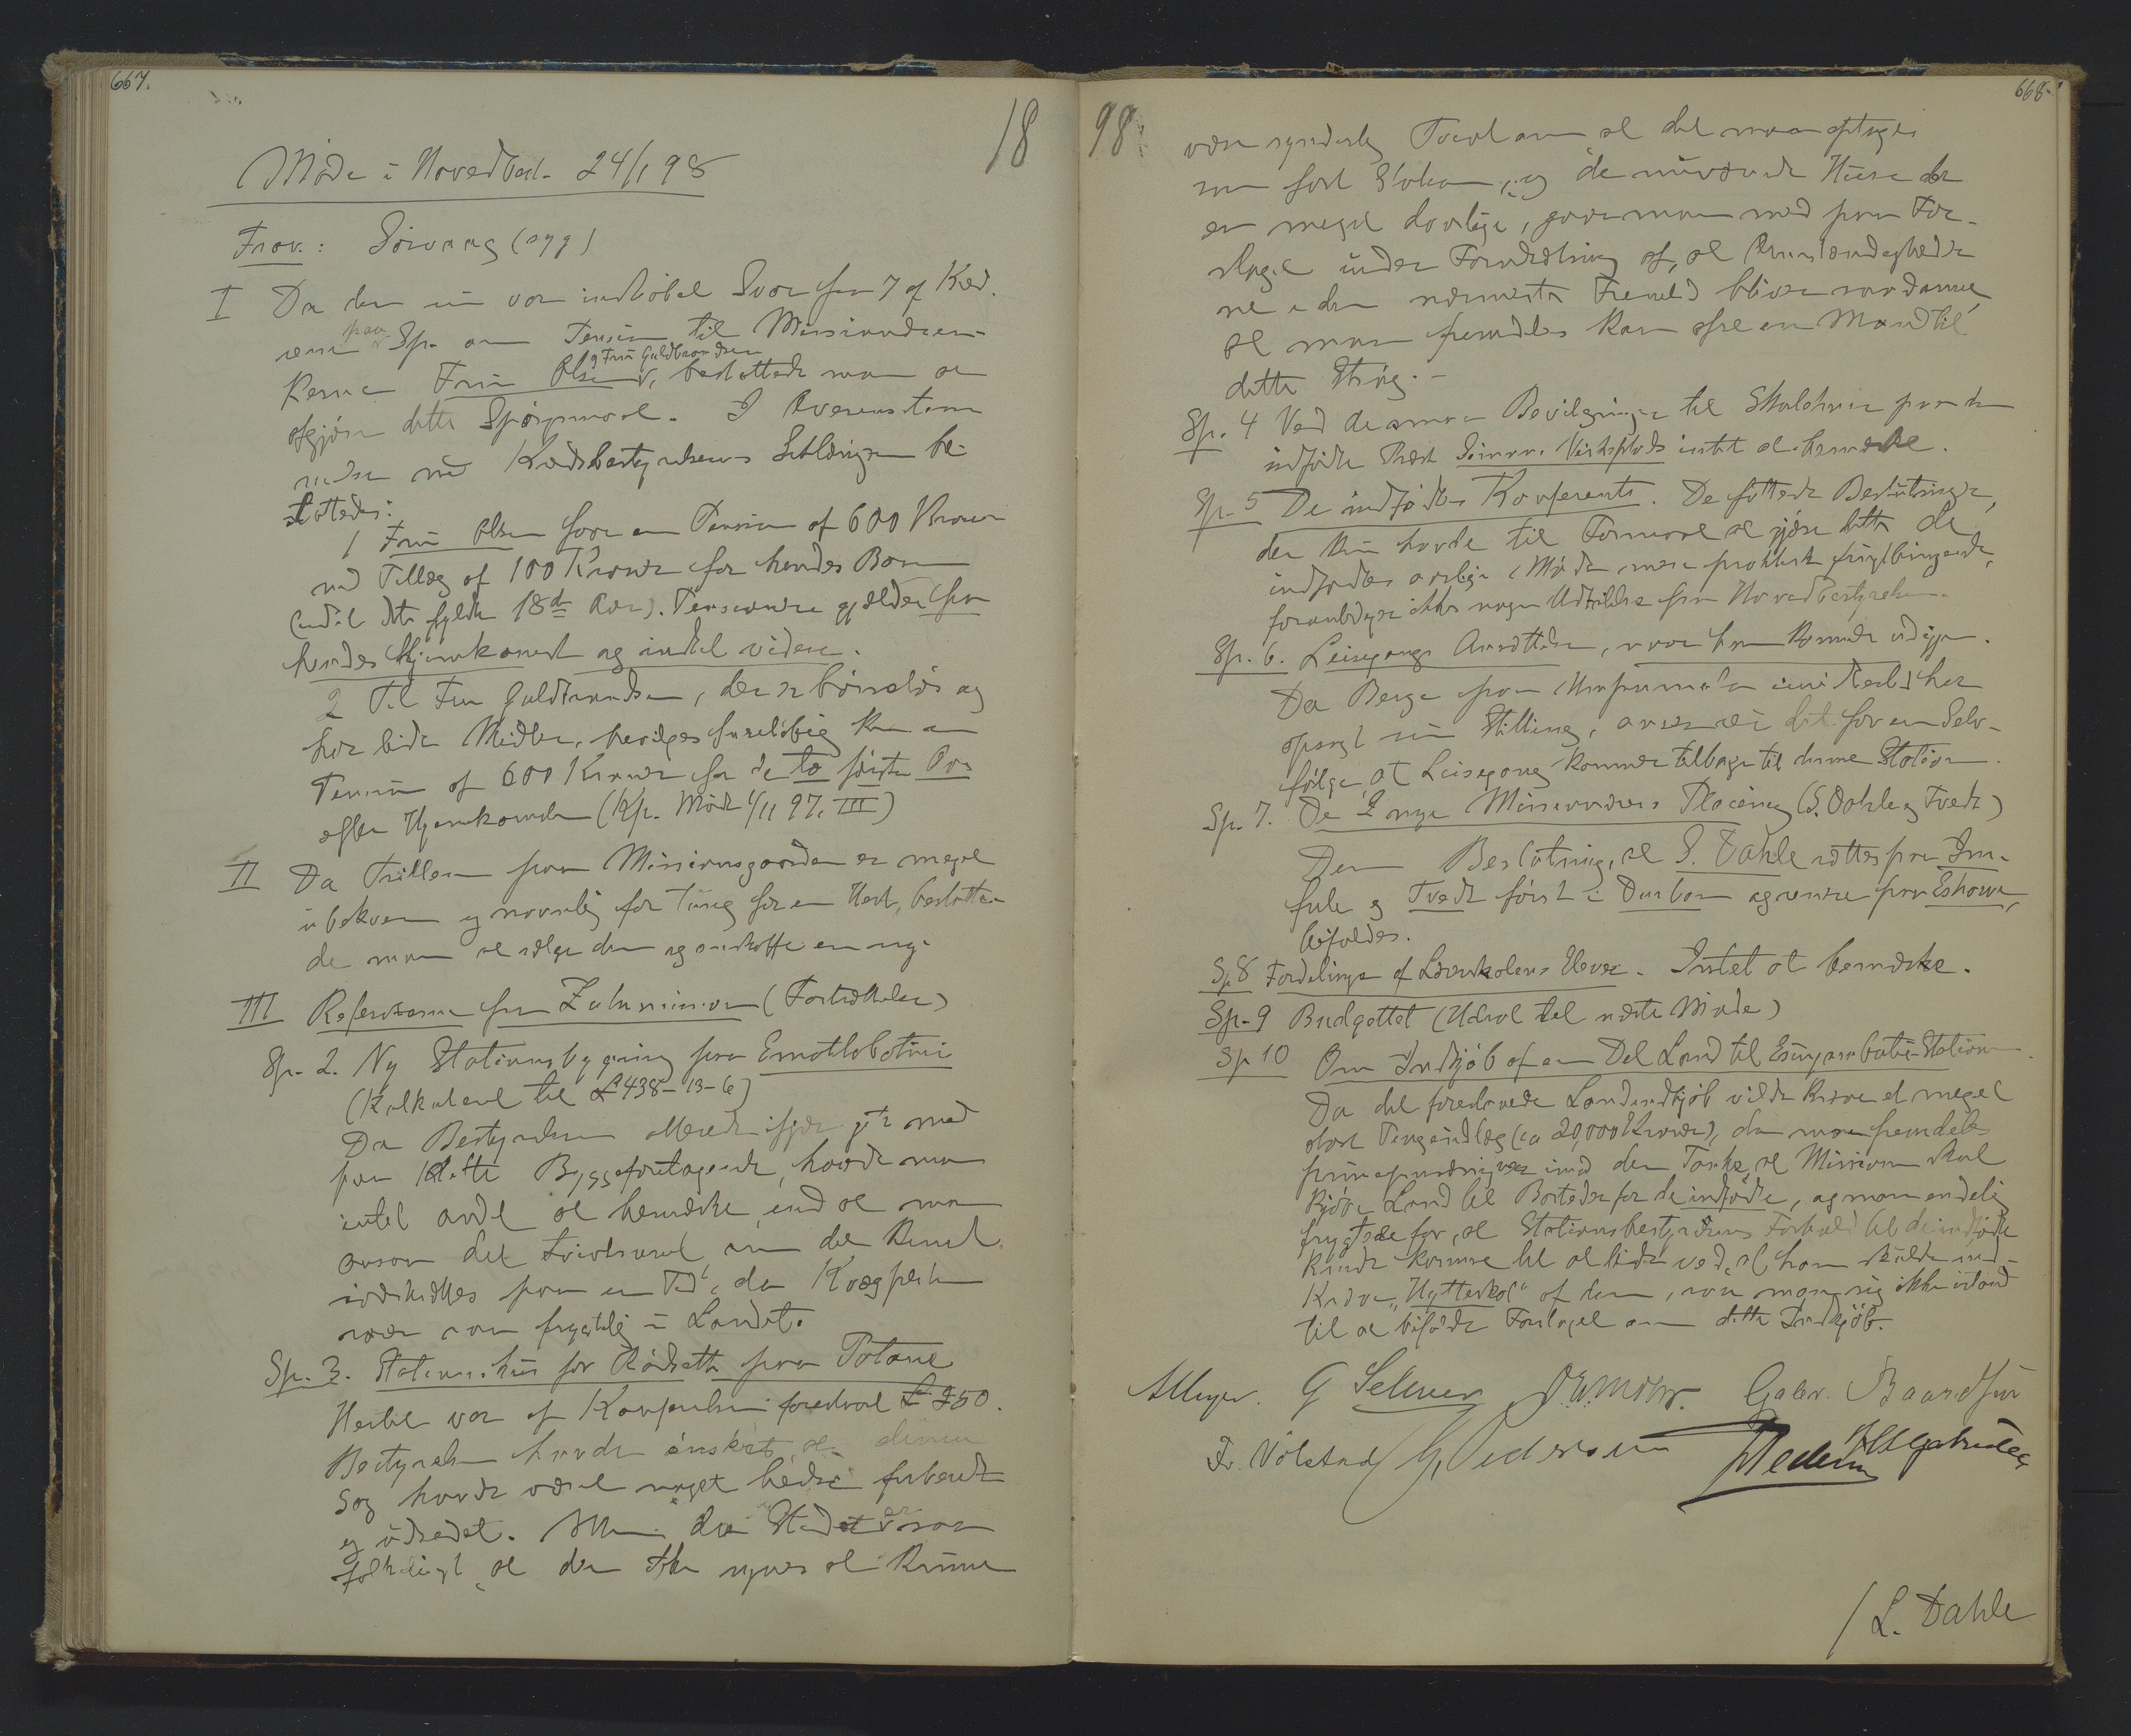 667.
18
Møde i Hovedbest. 24/1 98
Frav.: Sørvaag (syg)
I Da der nu var indløbet Svar fra 7 af Kred-
sene paa Sp. om Pension til Missionæren-
kerne Fru Olsen og Fru Guldbrandsen, besluttede man at
afgjøre dette Spørgsmaal. I Overensstem-
melse med Kredsbestyrelsernes Udtalelser be-
sluttedes:
1 Fru Olsen faar en Pension af 600 Kroner
med Tillæg af 100 Kroner for hendes Barn
(indtil dets fyldte 18de Aar). Pensionen gjælder fra
hendes Hjemkomst og indtil videre.
2 Til Fru Guldbrandsen, der er barnløs og
har lidt Midler, bevilges foreløbig kun en
Pension af 600 Kroner for de to første Aar
efter Hjemkomsten (Kfr. Møde 1/11 97, III)
II Da Trillen paa Missionsgaarden er meget
ubekvem og navnlig for tung for en Hest, beslutte-
de man at sælge den og anskaffe en ny.
III Referaterne fra Zulumissionen (Fortsættelse)
Sp. 2. Ny Stationsbygning paa Emothlobotini
(Kalkuleret til £ 438-13-6)
Da Bestyrelsen allerede ifjor gik med
paa dette Byggeforetagende, havde man
intet andet at bemærke, end at man
ansaa det tvivlsomt om det kunde
iværksættes paa en Tid, da Kvægpesten
var saa frygtelig i Landet.
Sp. 3. Stationshus for Rødseth paa Potane
Hertil var af Konferensen foreslaaet £ 250.
Bestyrelsen havde ønsket, at denne
Sag havde været noget bedre forberedt
og udredet. Men da Stedet er saa
folkeligt, at der ikke synes at kunne
98
668.
være synderlig Tvivl om, at det maa optages
som fast Station, og de nuværende Huse der
er meget daarlige, gaar man med paa For-
slaget under Forudsætning af, at Omstændighede-
ne i den nærmeste Fremtid bliver saadanne,
at man fremdeles kan ofre en Mand til
dette Strøg. –
Sp. 4 Ved de smaa Bevilgninger til Skolehuse paa den
indfødte Præst Simons Virkeplads intet at bemærke.
Sp. 5 De indfødtes Konferents. De fattede Beslutninger,
der kun havde til Formaal at gjøre dette de
indfødtes aarlige Møde mere praktisk frugtbringende,
foranlediger ikke nogen Udtalelse fra Hovedbestyrelsen.
Sp. 6. Leisegangs Ansættelse, naar han kommer ud igjen.
Da Berge paa Umpumulo imidlertid har
opsagt sin Stilling, anser vi det for en Selv-
følge, at Leisegang kommer tilbage til denne Station.
Sp. 7. De 2 nye Missionærers Placering (S. Dahle og Tvedt)
Den Beslutning, at S. Dahle sættes paa Im-
fule og Tvedt først i Durban og senere paa Eshowe,
bifaldes.
Sp 8 Fordelingen af Lærerskolens Elever. Intet at bemærke.
Sp. 9 Budgettet (Udsat til næste Møde)
Sp 10 Om Indkjøb af en Del Land til Esinyambuti-Station.
Da det foreslaaede Landindkjøb vilde kræve et meget
stort Pengeudlæg (ca 20,000 Kroner), da man fremdeles
principmæssig var imod den Tanke, at Missionen skal
kjøbe Land til Bosteder for de indfødte, og man endelig
frygtede for, at Stationsbestyrerens Forhold til de indfødte
kunde komme til at lide ved, at han skulde ind-
kræve "Hytteskat" af dem, saa man sig ikke istand
til at bifalde Forslaget om dette Indkjøb.
AMeyer. G Selmer Gabr. Baardsen
Fr. Vølstad G. Pedersen
/ L. Dahle